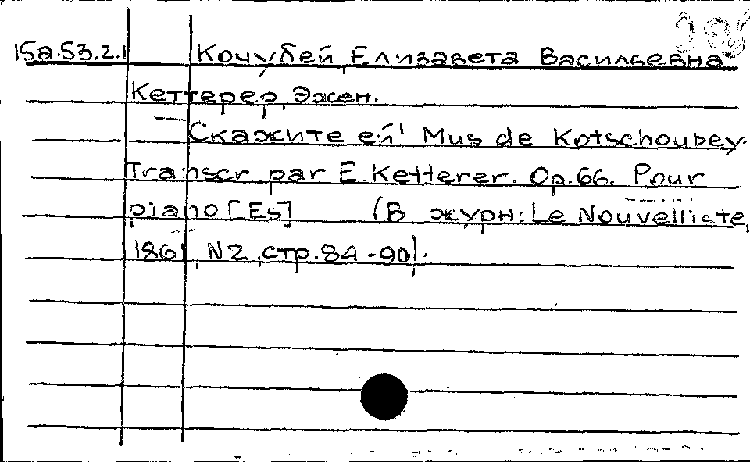 15а.53.2.1 Кочубей, Елизавета Васильевна
Кеттерер, Эжен.
Скажите ей! Mus de Kotschoubey.
Transcr par E Ketterer. Op.66. Pour
piano [Es] (В журн: Le Nouvelliste,
186 N2, стр.84-90).